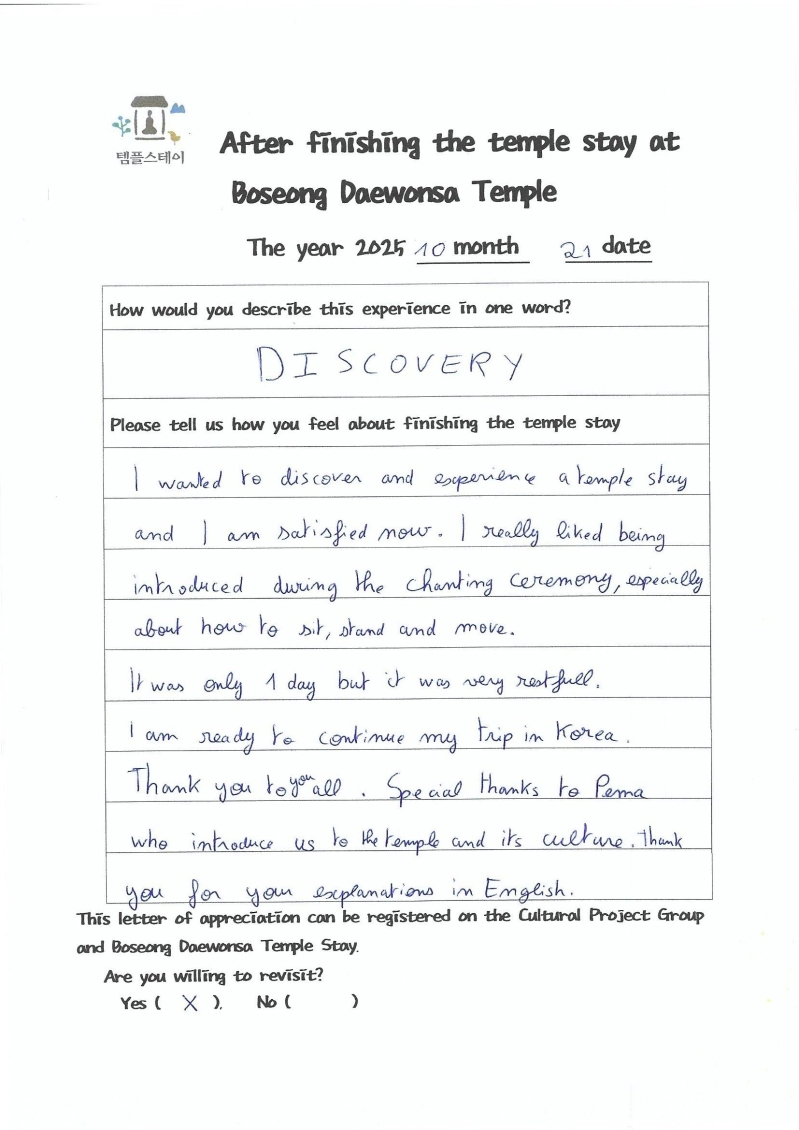 템플스테이
After finishing the temple stay at
Boseong Daewonsa Temple
The year 2025 10 month 21 date
How would you describe this experience in one word?
DISCOVERY
Please tell us how you feel about finishing the temple stay
I wanted to discover and experience a temple stay
and I am satisfied now. I really liked being
introduced during the chanting ceremony, especially
about how to sit, stand and move.
It was only 1 day but it was very restfull.
I am ready to continue my trip in Korea.
Thank you to you all. Special thanks to Pema
who introduce us to the temple and its culture. Thank
you for your explanations in English.
This letter of appreciation can be registered on the Cultural Project Group
and Boseong Daewonsa Temple Stay.
Are you willing to revisit?
Yes ( X ). No ( )